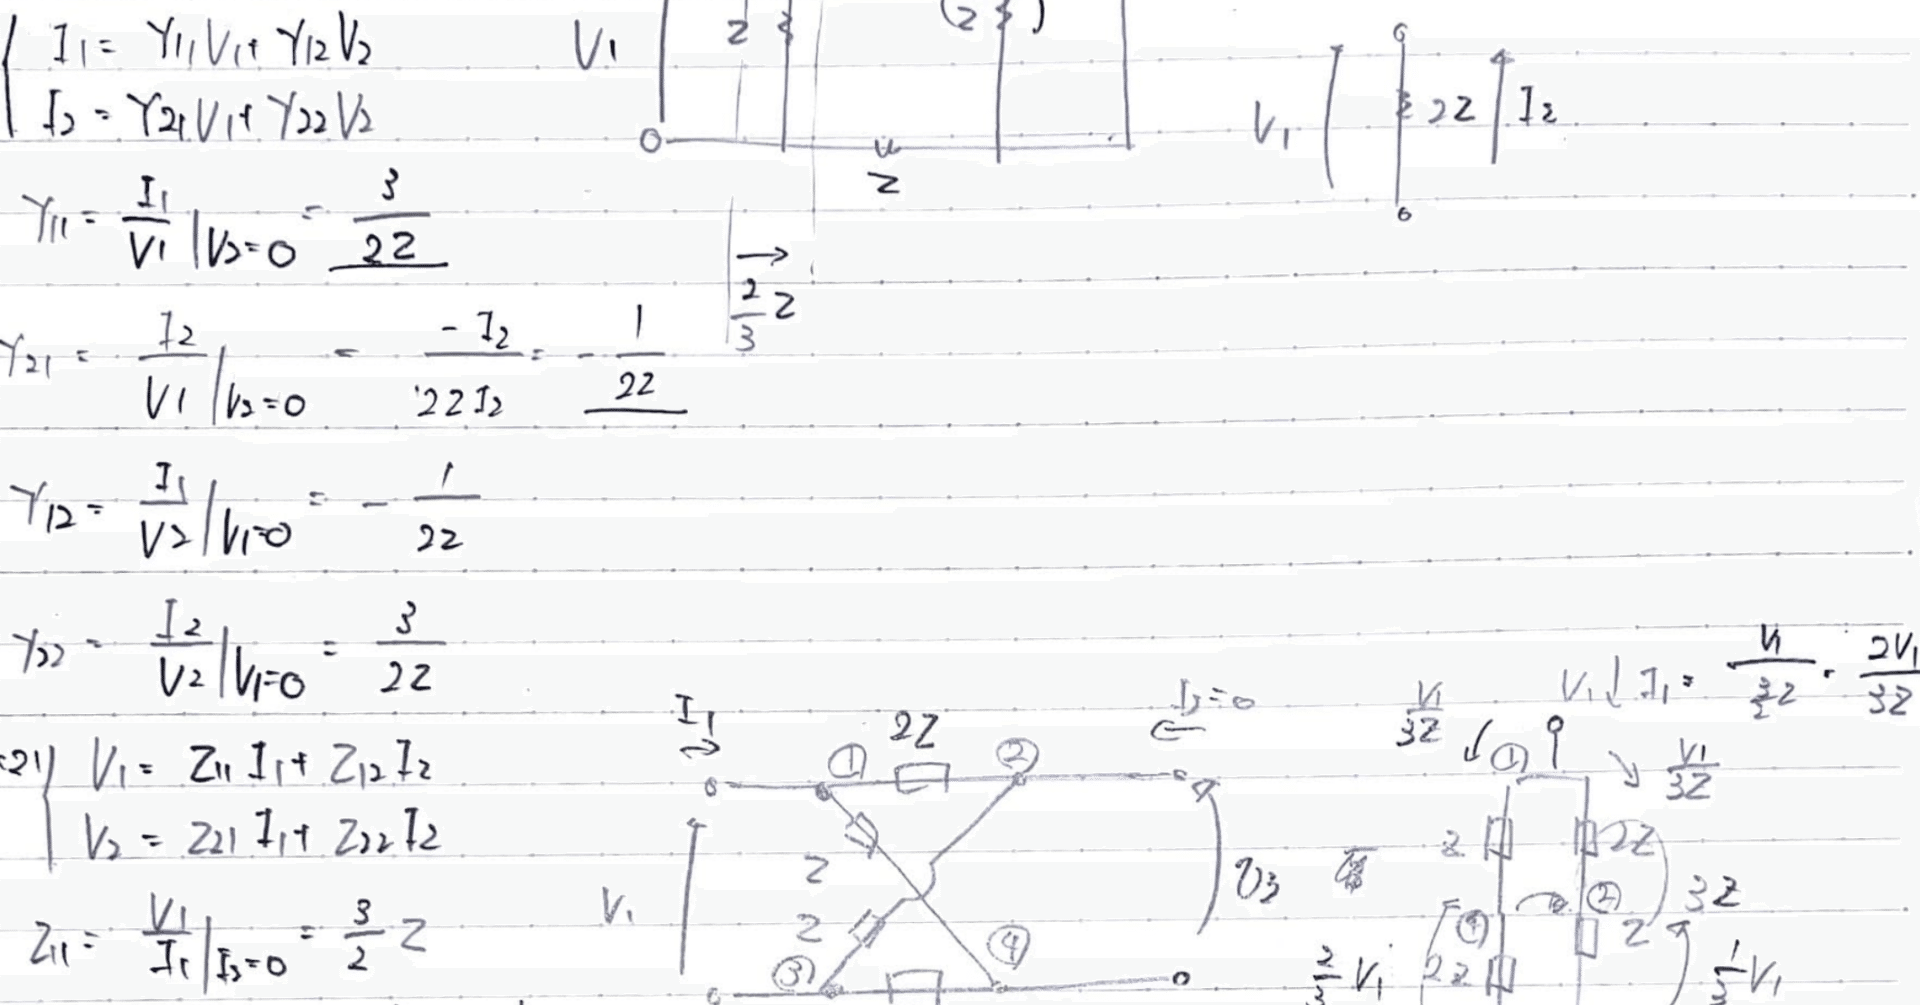 I1 = Y11 V1 + Y12 V2
I2 = Y21 V1 + Y22 V2
V1
Z
(Z
)
Z
V1
2Z
I2
Y11 = I1/V1 |V2=0 = 3/2Z
→
2/3 Z
Y21 = I2/V1 |V2=0 = -I2/2Z I2 = -1/2Z
Y12 = I1/V2 |V1=0 = -1/2Z
Y22 = I2/V2 |V1=0 = 3/2Z
V1 = Z11 I1 + Z12 I2
V2 = Z21 I1 + Z22 I2
Z11 = V1/I1 |I2=0 = 3/2 Z
I1
→
① 2Z ②
I2=0
←
Z
Z
③ ④
V1
V1/3Z
V1 ↓ I1 = V1/(3/2 Z) = 2V1/3Z
①
V1/3Z
Z
2Z
②
3Z
④
Z
2Z
2/3 V1
1/3 V1